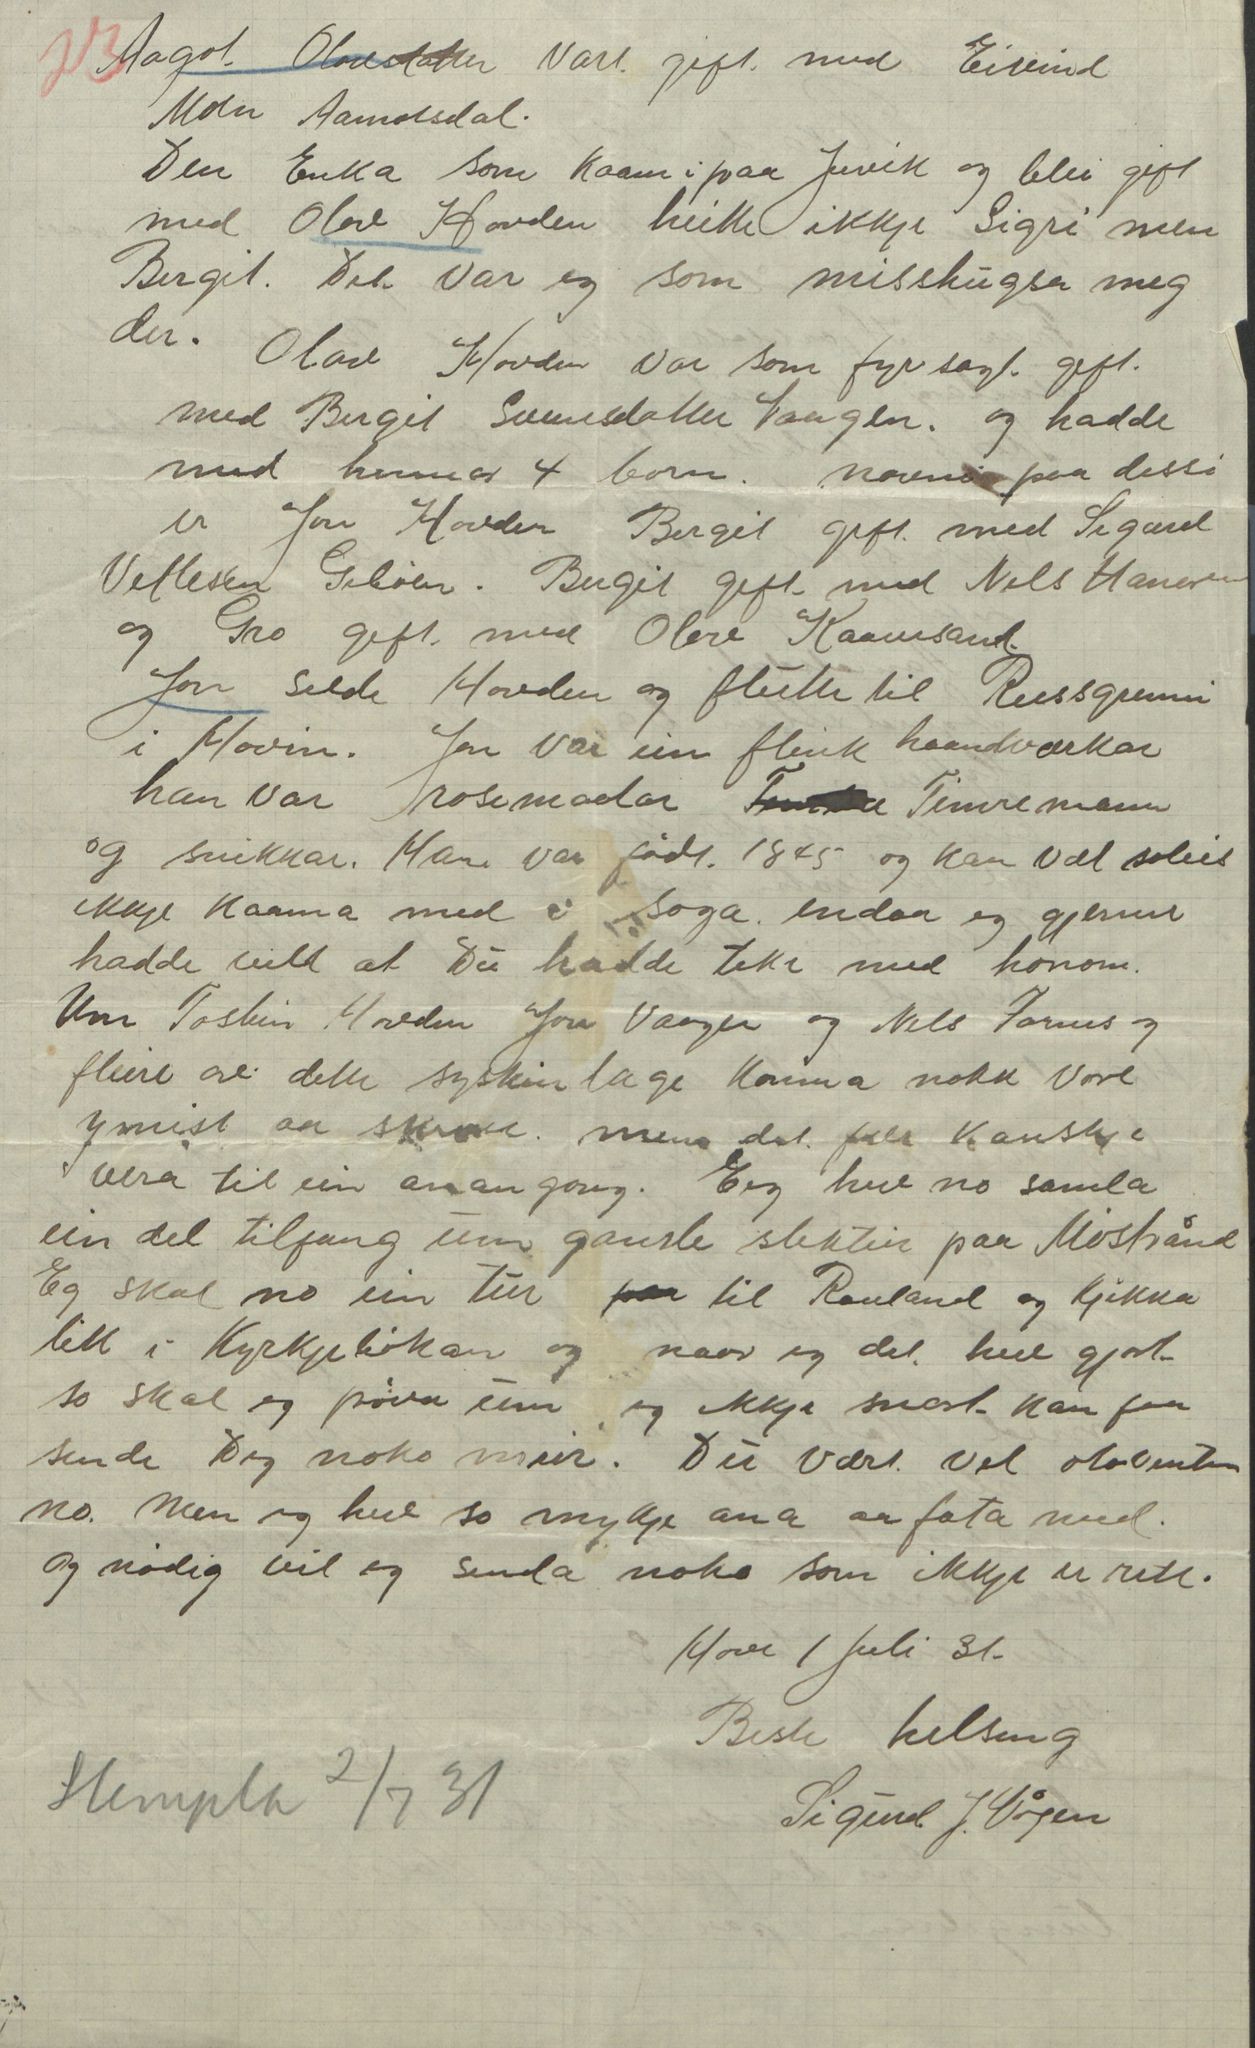 Aagot Olavsdatter vart gift med Eivind
Moen Aamotsdal.
Den Enka som kaam i paa Juvik og blei gift
med Olav Hovden heitte ikkje Sigri men
Bergit. Det var eg som misshugsa meg
der.
Olav Hovden var som fyr sagt gift
med Bergit Sveinsdatter Vaagen. og hadde
med hennar 4 born. novni paa dessi
er Jon Hovden Bergit gift med Sigurd
Vetlesen Gibøen. Bergit gift med Nils
og Gro gift med Olav Kaavesand.
Jon selde Hovden og flutte til Russgrunni
i Hovin. Jon var ein flink haandværkar
han var rosemaalar Timremann
og snikkar. Han var født 1845 og kan væl soleis
ikkje kaama med i soga endaa eg gjerne
hadde vild at Du hadde teke med honom.
Um Tostein Hovden Jon Vaagen og Nils Farnes og
fleire av dette syskinlage kunna nokk vore
ymist aa skrive. men det fær kanskje
vera til ein anan gong. Eeg heve no samla
ein del tilfang um gamle slektir paa Møstrånd
Eg skal no ein tur paa til Rauland og kjikka
litt i Kyrkjebøkan og naar eg det heve gjort
so skal eg prøva um eg ikkje snart kan faa
senda Deg noko meir. Du vært vel
no. Men eg heve so mykje ana aa fata med.
og nødig vil eg senda noko som ikkje er rett.
Hove 1 Juli 31.
Beste helsing
Sigurd J. Vågen
Stempla 2/7 31